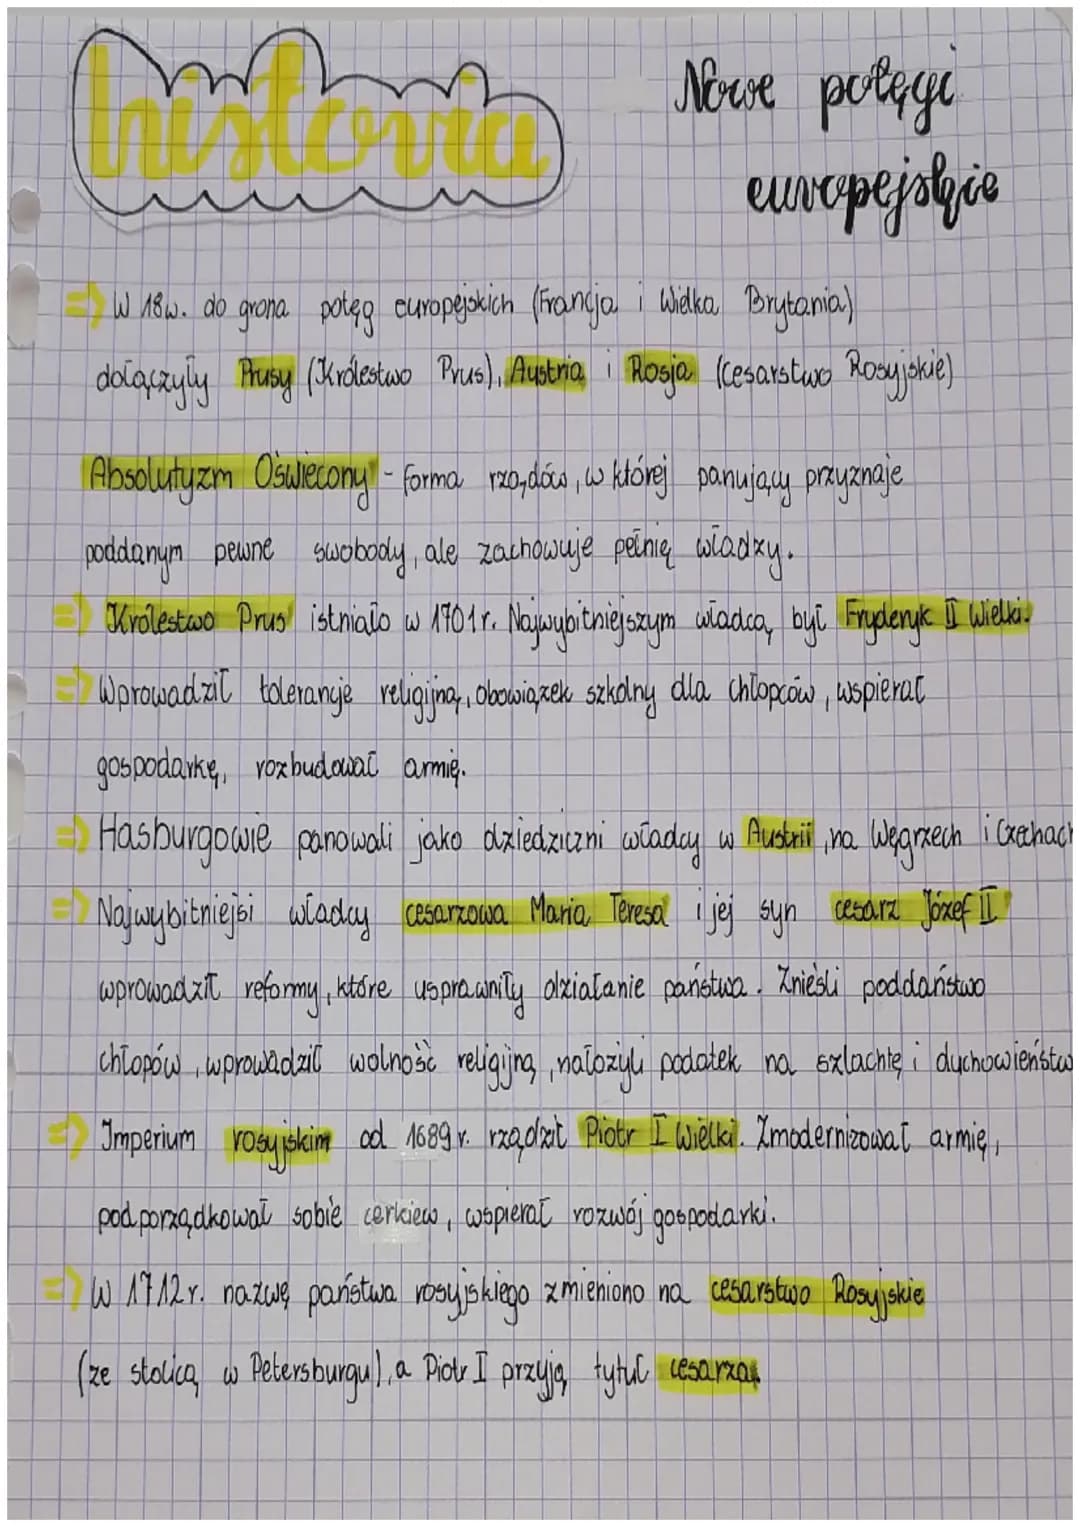 historia
Nowe potęgi
europejskie
=> W 18w. do grona potęg europejskich (Francja i Wielka Brytania)
dołączyły Prusy (Królestwo Prus), Austria i Rosja (cesarstwo Rosyjskie)
Absolutyzm Oświecony - forma rządów, w której panujący przyznaje
poddanym pewne swobody, ale zachowuje pełnię władzy.
=> Królestwo Prus istniało w 1701r. Najwybitniejszym władcą był Fryderyk II Wielki.
=> Wprowadził tolerancje religijną, obowiązek szkolny dla chłopców, wspierał
gospodarkę, rozbudował armię.
=> Hasburgowie panowali jako dziedziczni władcy w Austrii, na Węgrzech i Czechach
=> Najwybitniejsi władcy cesarzowa Maria Teresa i jej syn cesarz Józef II
wprowadził reformy, które usprawniły działanie państwa. Znieśli poddaństwo
chłopów, wprowadził wolność religijną, nałożyli podatek na szlachtę i duchowieństw
=> Imperium rosyjskim od 1689r. rządził Piotr I Wielki. Zmodernizował armię,
podporządkował sobie cerkiew, wspierał rozwój gospodarki.
=> W 1712r. nazwę państwa rosyjskiego zmieniono na cesarstwo Rosyjskie
(ze stolicą w Petersburgu), a Piotr I przyją tytuł cesarza.